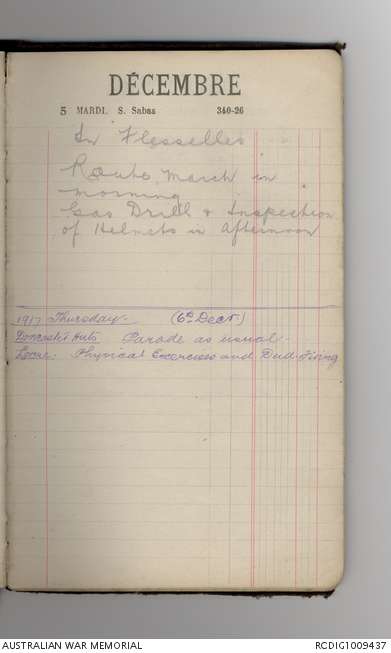 DÉCEMBRE
5 MARDI. S. Sabas 340-26
In Flesselles
Route March in
morning
Gas Drill & Inspection
of Helmets in Afternoon
1917 Thursday. (6th Decr)
Doncaster Huts Parade as usual.
Locre. Physical Excercises and Bud-Fixing
AUSTRALIAN WAR MEMORIAL RCDIG1009437